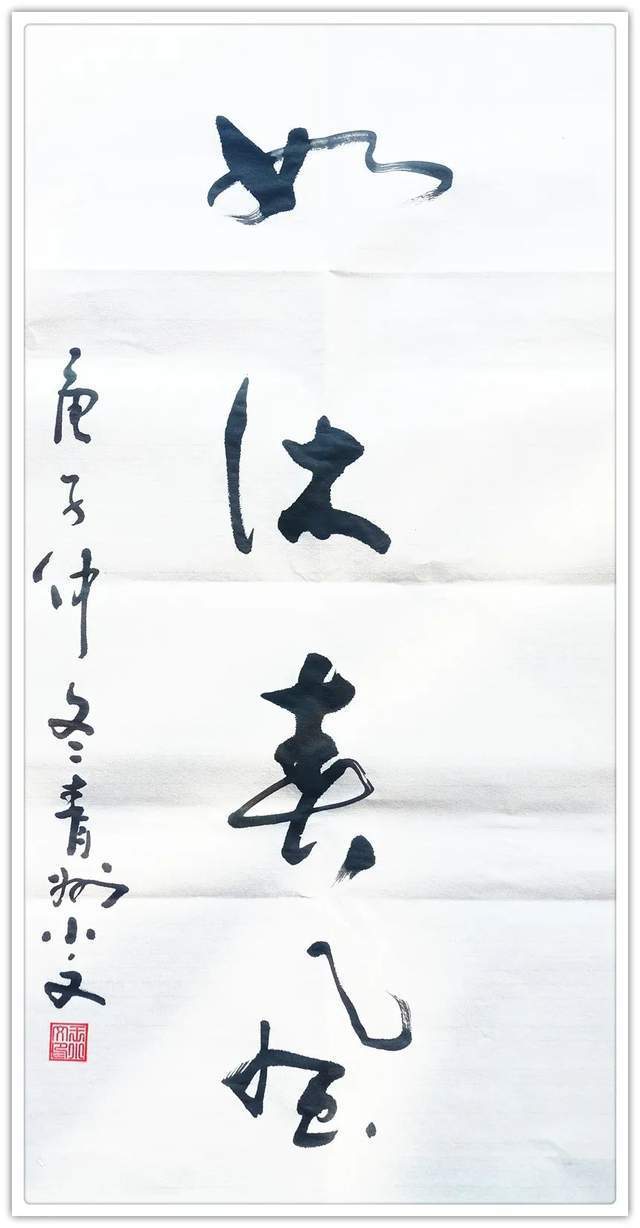 如沐春风
庚子仲冬青州小文